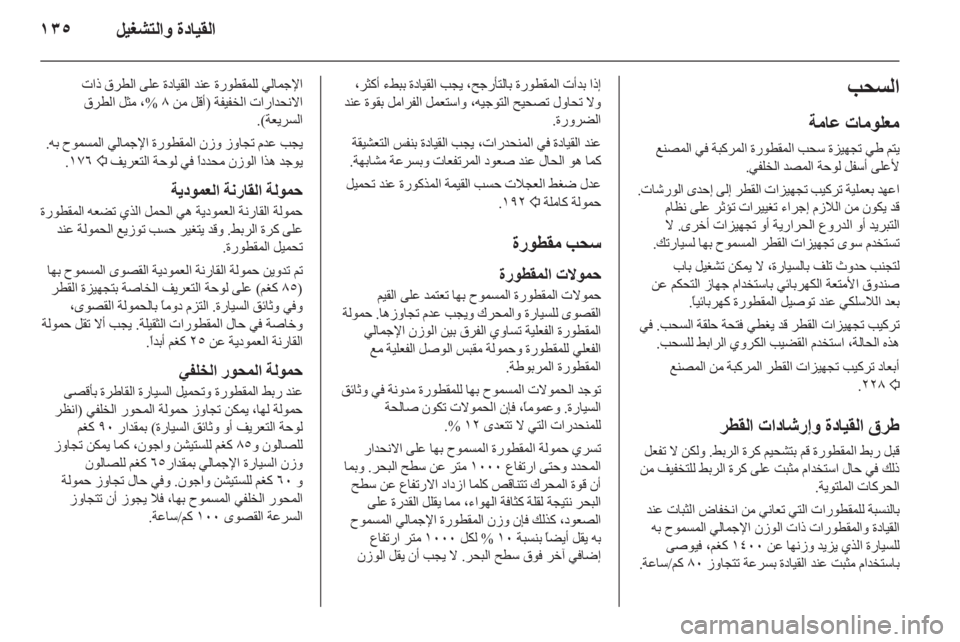 القيادة والتشغيل ١٣٥
السحب
معلومات عامة
يتم طي تجهيزة سحب المقطورة المركبة في المصنع
لأعلى أسفل لوحة المصد الخلفي.
اعهد بعملية تركيب تجهيزات القطر إلى إحدى الورشات.
قد يكون من اللازم إجراء تغييرات تؤثر على نظام
التبريد أو الدروع الحرارية أو تجهيزات أخرى. لا
تستخدم سوى تجهيزات القطر المسموح بها لسيارتك.
لتجنب حدوث تلف بالسيارة، لا يمكن تشغيل باب
صندوق الأمتعة الكهربائي باستخدام جهاز التحكم عن
بعد اللاسلكي عند توصيل المقطورة كهربائياً.
تركيب تجهيزات القطر قد يغطي فتحة حلقة السحب. في
هذه الحالة، استخدم القضيب الكروي الرابط للسحب.
أبعاد تركيب تجهيزات القطر المركبة من المصنع
⇨ ٢٢٨.
طرق القيادة وإرشادات القطر
قبل ربط المقطورة قم بتشحيم كرة الربط. ولكن لا تفعل
ذلك في حال استخدام مثبت على كرة الربط للتخفيف من
الحركات الملتوية.
بالنسبة للمقطورات التي تعاني من انخفاض الثبات عند
القيادة والمقطورات ذات الوزن الإجمالي المسموح به
للسيارة الذي يزيد وزنها عن ١٤٠٠ كغم، فيوصى
باستخدام مثبت عند القيادة بسرعة تتجاوز ٨٠ كم/ساعة.
إذا بدأت المقطورة بالتأرجح، يجب القيادة ببطء أكثر،
ولا تحاول تصحيح التوجيه، واستعمل الفرامل بقوة عند
الضرورة.
عند القيادة في المنحدرات، يجب القيادة بنفس التعشيقة
كما هو الحال عند صعود المرتفعات وبسرعة مشابهة.
عدل ضغط العجلات حسب القيمة المذكورة عند تحميل
حمولة كاملة ⇨ ١٩٢.
سحب مقطورة
حمولات المقطورة
حمولات المقطورة المسموح بها تعتمد على القيم
القصوى للسيارة والمحرك ويجب عدم تجاوزها. حمولة
المقطورة الفعلية تساوي الفرق بين الوزن الإجمالي
الفعلي للمقطورة وحمولة مقبس الوصل الفعلية مع
المقطورة المربوطة.
توجد الحمولات المسموح بها للمقطورة مدونة في وثائق
السيارة. وعموماً، فإن الحمولات تكون صالحة
للمنحدرات التي لا تتعدى ١٢ %.
تسري حمولة المقطورة المسموح بها على الانحدار
المحدد وحتى ارتفاع ١٠٠٠ متر عن سطح البحر. وبما
أن قوة المحرك تتناقص كلما ازداد الارتفاع عن سطح
البحر نتيجة لقلة كثافة الهواء، مما يقلل القدرة على
الصعود، كذلك فإن وزن المقطورة الإجمالي المسموح
به يقل أيضاً بنسبة ١٠ % لكل ١٠٠٠ متر ارتفاع
إضافي آخر فوق سطح البحر. لا يجب أن يقل الوزن
الإجمالي للمقطورة عند القيادة على الطرق ذات
الانحدارات الخفيفة (أقل من ٨ %، مثل الطرق
السريعة).
يجب عدم تجاوز وزن المقطورة الإجمالي المسموح به.
يوجد هذا الوزن محدداً في لوحة التعريف ⇨ ١٧٦.
حمولة القارنة العمودية
حمولة القارنة العمودية هي الحمل الذي تضعه المقطورة
على كرة الربط. وقد يتغير حسب توزيع الحمولة عند
تحميل المقطورة.
تم تدوين حمولة القارنة العمودية القصوى المسموح بها
(٨٥ كغم) على لوحة التعريف الخاصة بتجهيزة القطر
وفي وثائق السيارة. التزم دوماً بالحمولة القصوى،
وخاصة في حال المقطورات الثقيلة. يجب ألا تقل حمولة
القارنة العمودية عن ٢٥ كغم أبداً.
حمولة المحور الخلفي
عند ربط المقطورة وتحميل السيارة القاطرة بأقصى
حمولة لها، يمكن تجاوز حمولة المحور الخلفي (انظر
لوحة التعريف أو وثائق السيارة) بمقدار ٩٠ كغم
للصالون و٨٥ كغم للستيشن واجون، كما يمكن تجاوز
وزن السيارة الإجمالي بمقدار٦٥ كغم للصالون
و ٦٠ كغم للستيشن واجون. وفي حال تجاوز حمولة
المحور الخلفي المسموح بها، فلا يجوز أن تتجاوز
السرعة القصوى ١٠٠ كم/ساعة.